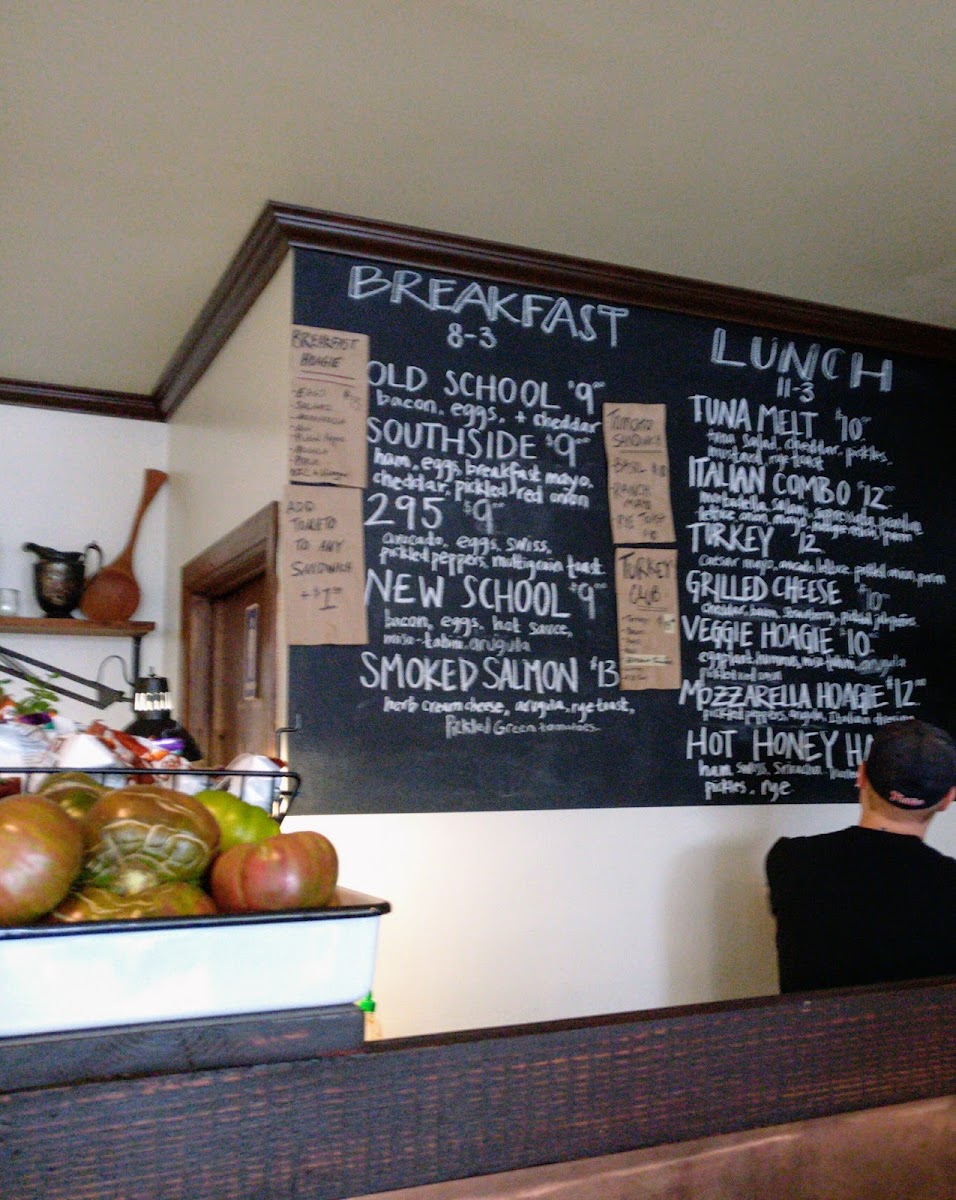 BREAKFAST
8-3
BREAKFAST
HOAGIE
-EGGS
ADD
TOMATO
TO ANY
SANDWICH
+$1
OLD SCHOOL $9
bacon, eggs, + cheddar
SOUTHSIDE $9
ham, eggs, breakfast mayo,
cheddar, pickled red onion
295 $9
avocado, eggs, swiss,
pickled peppers, multigrain toast
NEW SCHOOL $9
bacon, eggs, hot sauce,
miso-tahini, arugula
SMOKED SALMON $13
herb cream cheese, arugula, rye toast,
Pickled Green tomatoes
TOMATO
SANDWICH
-BASIL
-RANCH
MAYO
RYE TOAST
TURKEY
CLUB
LUNCH
11-3
TUNA MELT $10
tuna salad, cheddar, pickles,
mustard, rye toast
ITALIAN COMBO $12
mortadella, salami, soppressata, provolone,
lettuce, onion, mayo, hoagie relish, parm
TURKEY 12
caesar mayo, avocado, lettuce, pickled onion, parm
GRILLED CHEESE $10
cheddar, bacon, strawberry, pickled jalapeños
VEGGIE HOAGIE $10
eggplant, hummus, miso-tahini, arugula
pickled red onion
MOZZARELLA HOAGIE $12
pickled peppers, arugula, Italian dressing
HOT HONEY HA
ham, swiss, Sriracha
pickles, rye